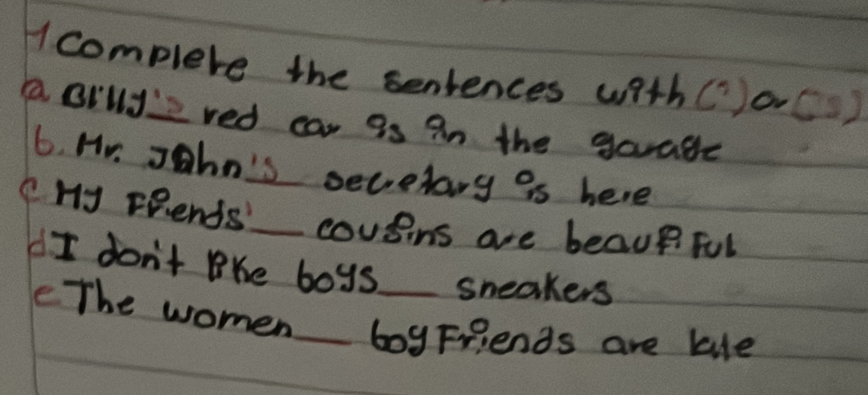 1 Complete the sentences with (') or ('s)
a Billy's red car is in the garage
b. Mr. John's secretary is here
c My Friends' cousins are beautiful
d I don't like boys__ sneakers
e The women__ boyFriends are late